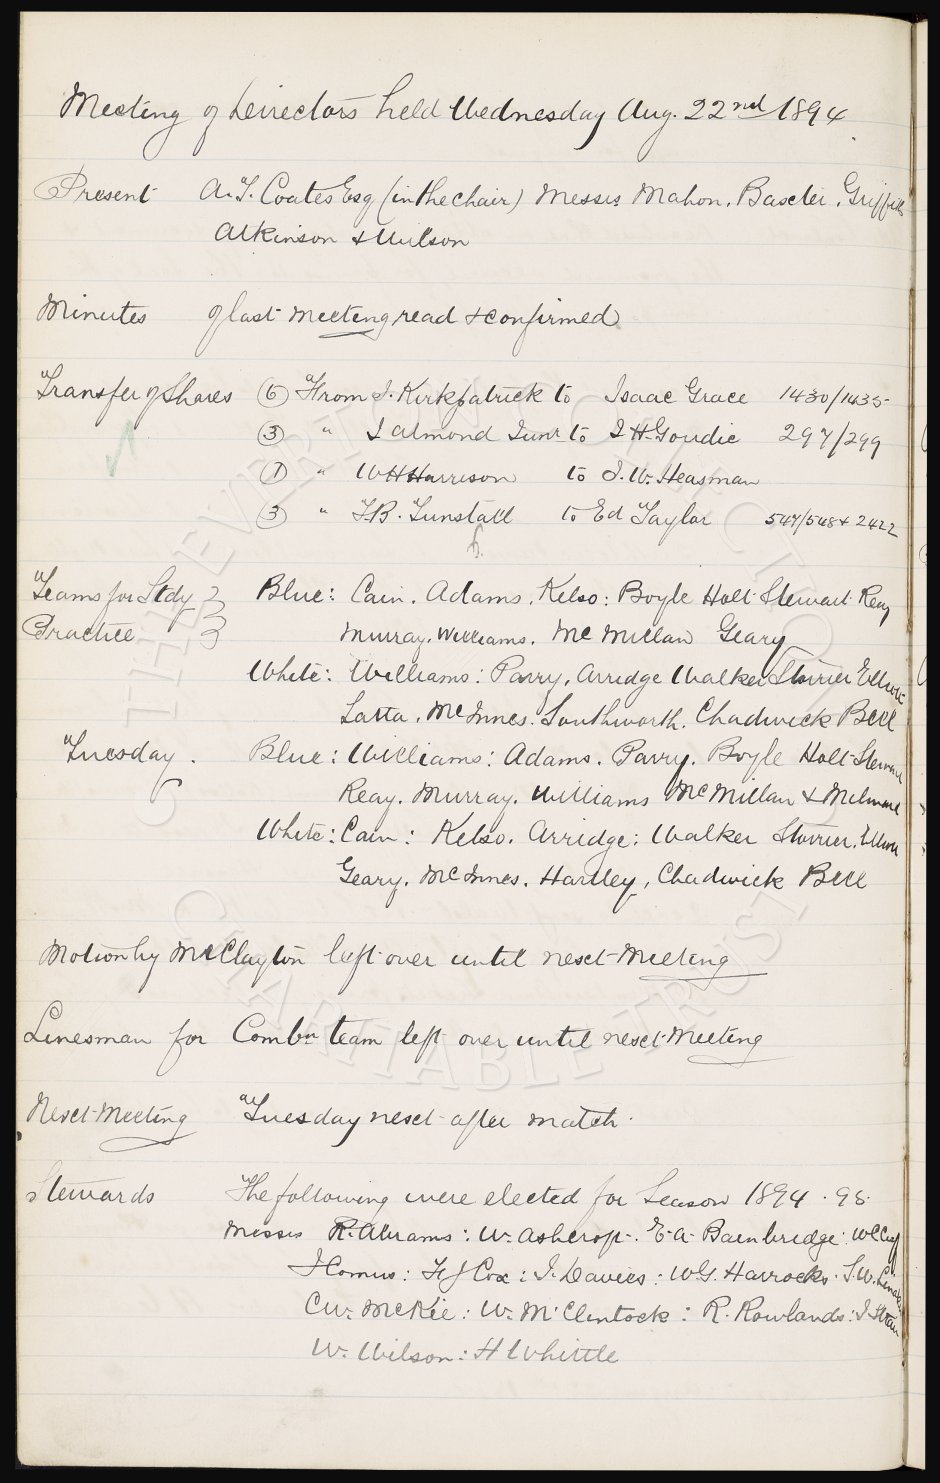 Meeting of Directors held Wednesday Aug. 22nd 1894
Present A.T. Coates Esq (in the chair) Messrs Mahon, Baxter, Griffiths
Atkinson & Wilson
Minutes of last meeting read & confirmed
Transfer of Shares (6) From J. Kirkpatrick to Isaac Grace 1430/1435
(3) " J Almond Junr to J H Goudie 297/299
(1) " W H Harrison to J. W. Heasman
(3) " T.B. Tunstall to Ed Taylor 547/548 & 2422
Teams for Stdy Blue: Cain. Adams. Kelso: Boyle Holt Stewart Reay
Practice Murray. Williams. McMillan Geary
White: Williams: Parry, Arridge Walker Storrier Elliott
Latta, McInnes. Southworth. Chadwick Bell
Tuesday. Blue: Williams: Adams. Parry. Boyle Holt Stewart
Reay. Murray. Williams McMillan & Milward
White: Cain: Kelso. Arridge: Walker Storrier. Elliott
Geary. McInnes. Hartley, Chadwick Bell
Motion by Mr Clayton left over until next Meeting
Linesman for Combn team left over until next Meeting
Next Meeting Tuesday next after match.
Stewards The following were elected for Season 1894.95.
Messrs R. Abrams: W. Ashcroft. E. A. Bainbridge: W C
J Comus: H J Cox: J. Davies: W G. Harrocks. J. W.
C W. McKie: W. McClintock: R. Rowlands: J
W. Wilson: H Whittle
THE EVERTON COLLECTION
CHARITABLE TRUST